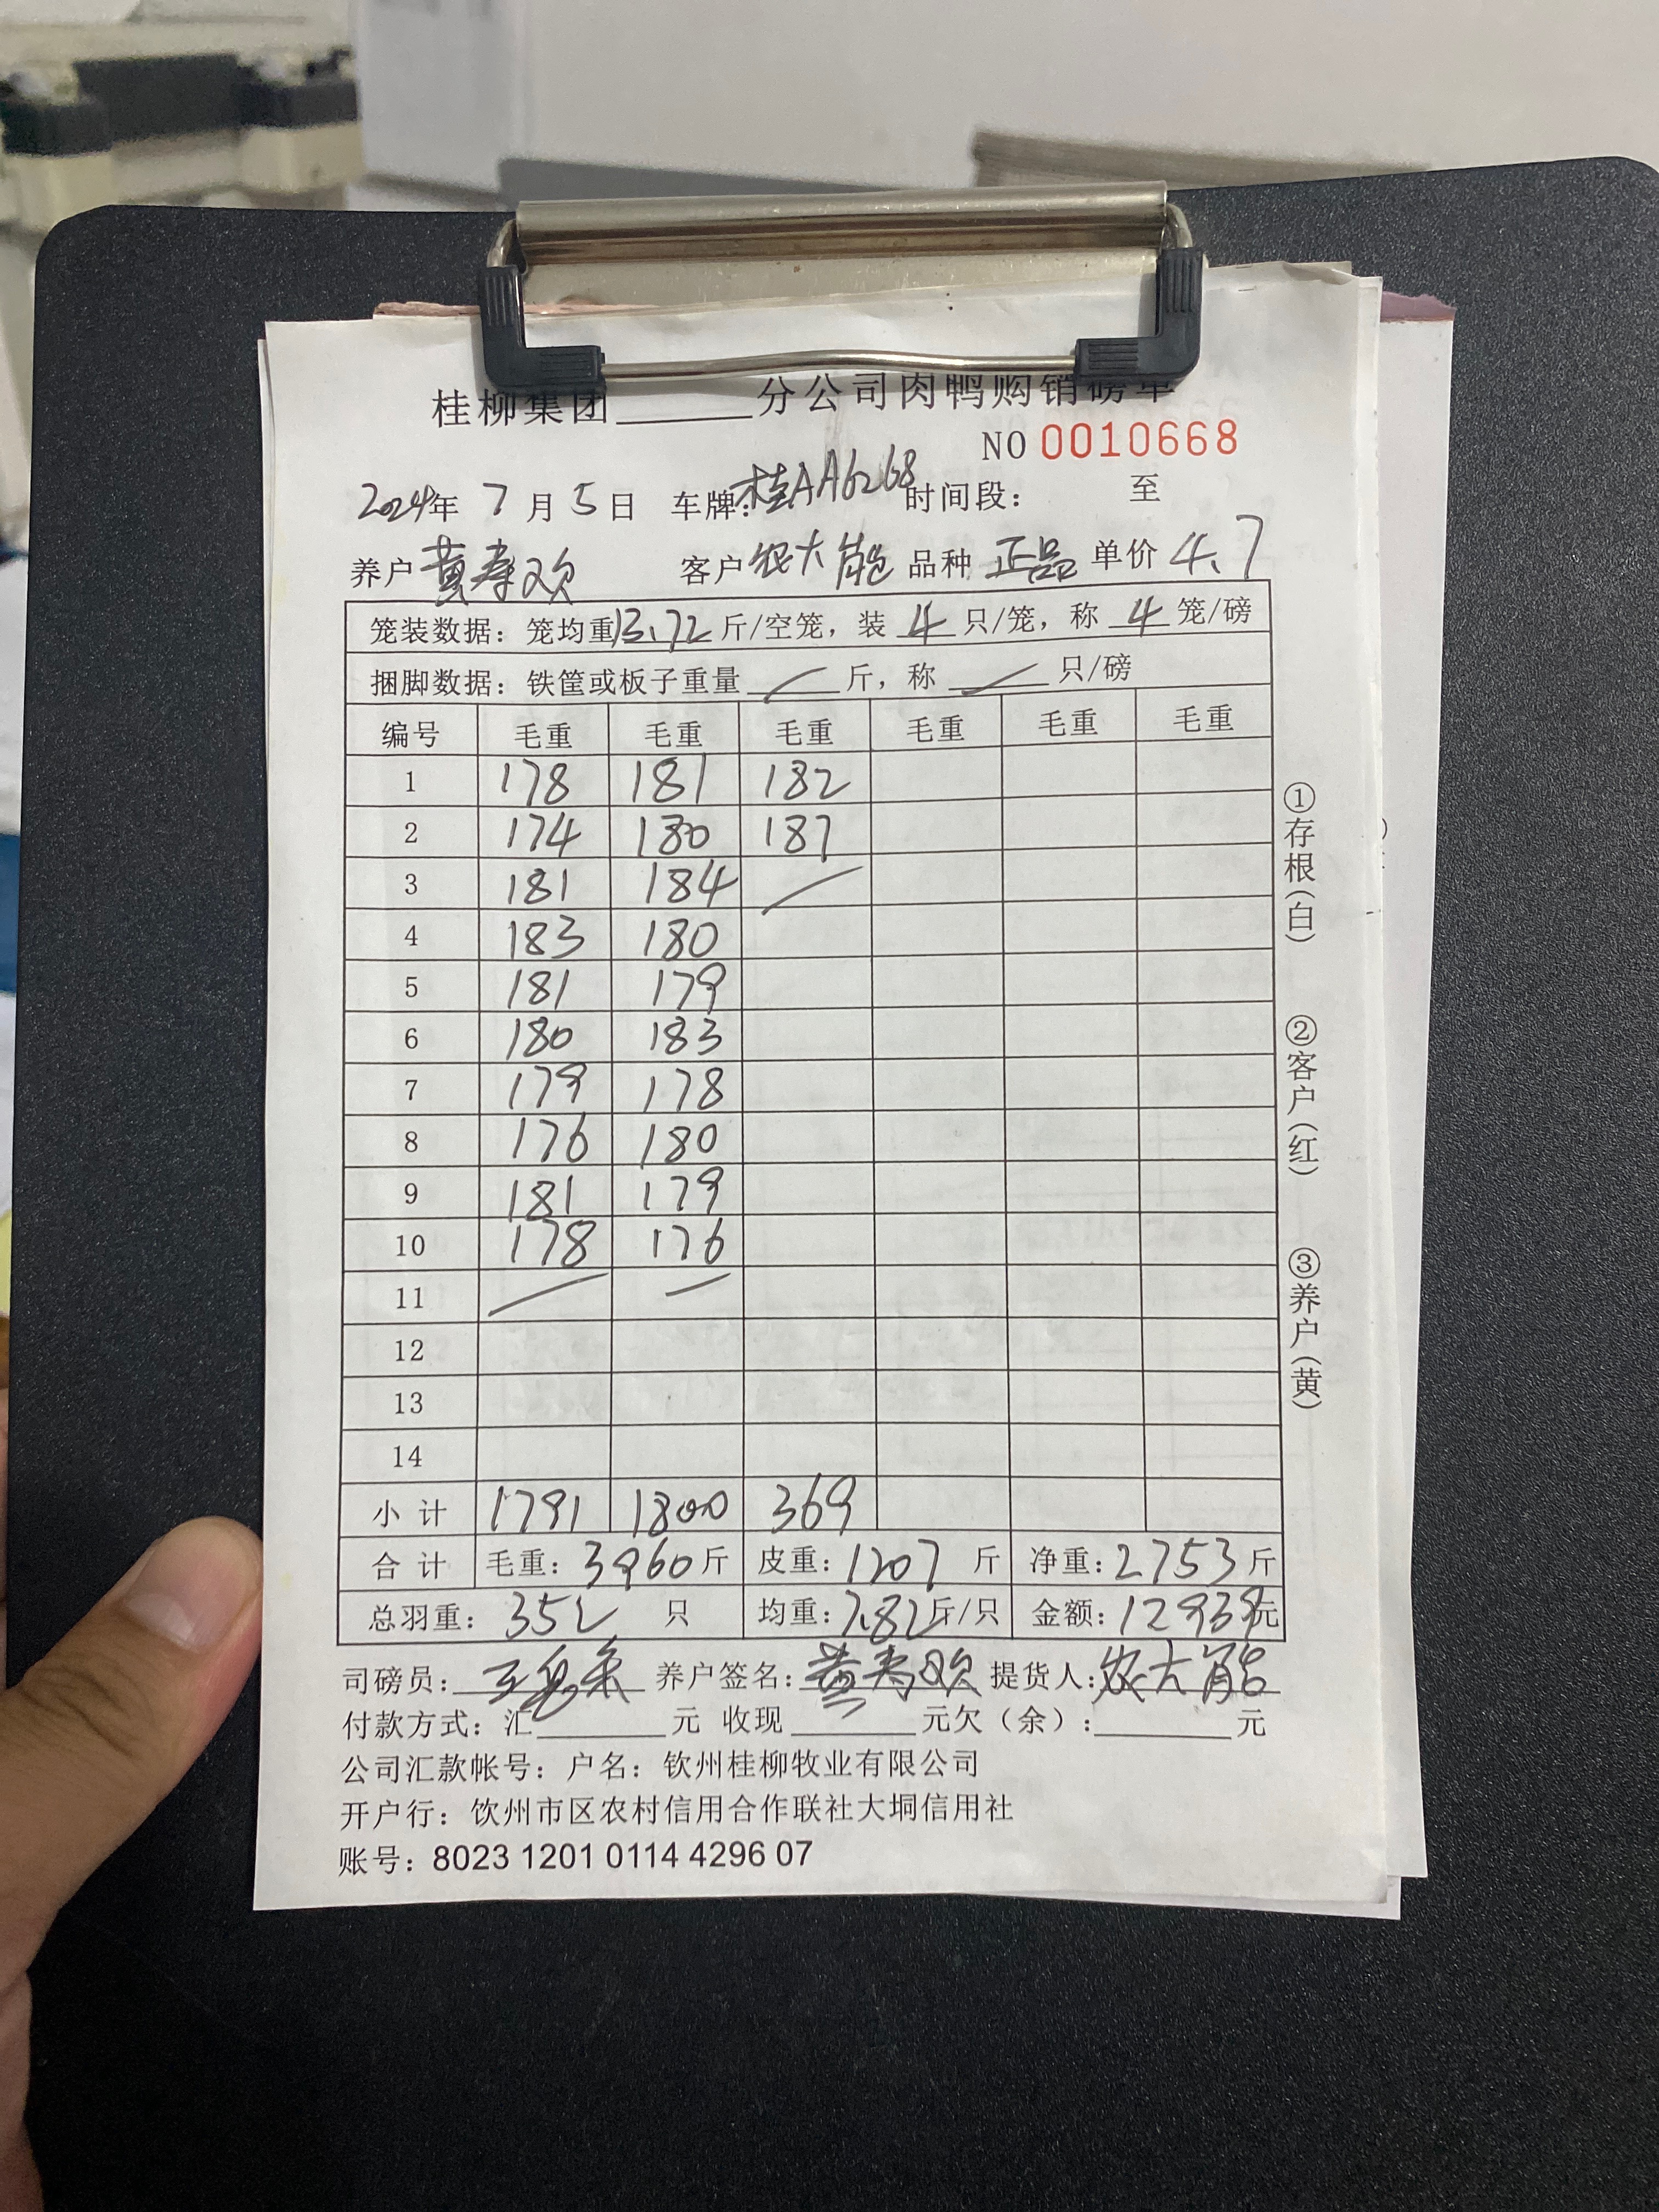 桂柳集团______分公司肉鸭购销磅单
NO 0010668
2024年 7月 5日 车牌:桂AA6268 时间段: 至
养户 黄寿欢 客户 农大能 品种 正品 单价 4.7
笼装数据:笼均重13.72斤/空笼,装 4 只/笼,称 4 笼/磅
捆脚数据:铁筐或板子重量 / 斤,称 / 只/磅
编号 毛重 毛重 毛重 毛重 毛重 毛重
1 178 181 182
2 174 180 187
3 181 184 /
4 183 180
5 181 179
6 180 183
7 179 178
8 176 180
9 181 179
10 178 176
11 / /
12
13
14
小计 1791 1800 369
合计 毛重:3960斤 皮重:1207 斤 净重:2753斤
总羽重:352 只 均重:7.82斤/只 金额:12939元
司磅员: 养户签名:黄寿欢 提货人:农大能
付款方式:汇______元 收现______元欠(余):______元
公司汇款帐号:户名:钦州桂柳牧业有限公司
开户行:饮州市区农村信用合作联社大垌信用社
账号:8023 1201 0114 4296 07
①存根(白)
②客户(红)
③养户(黄)